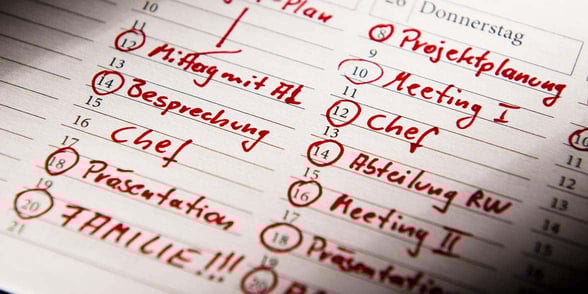 -Plan
10
11
12 Mittag mit AL
13
14 Besprechung
15
16 Chef
17
18 Präsentation
19
20 FAMILIE!!!
21
26 Donnerstag
8 Projektplanung
9
10 Meeting I
11
12 Chef
13
14 Abteilung RW
15
16 Meeting II
17
18 Präsentation
19
20
10
11
12
13
14
15
16